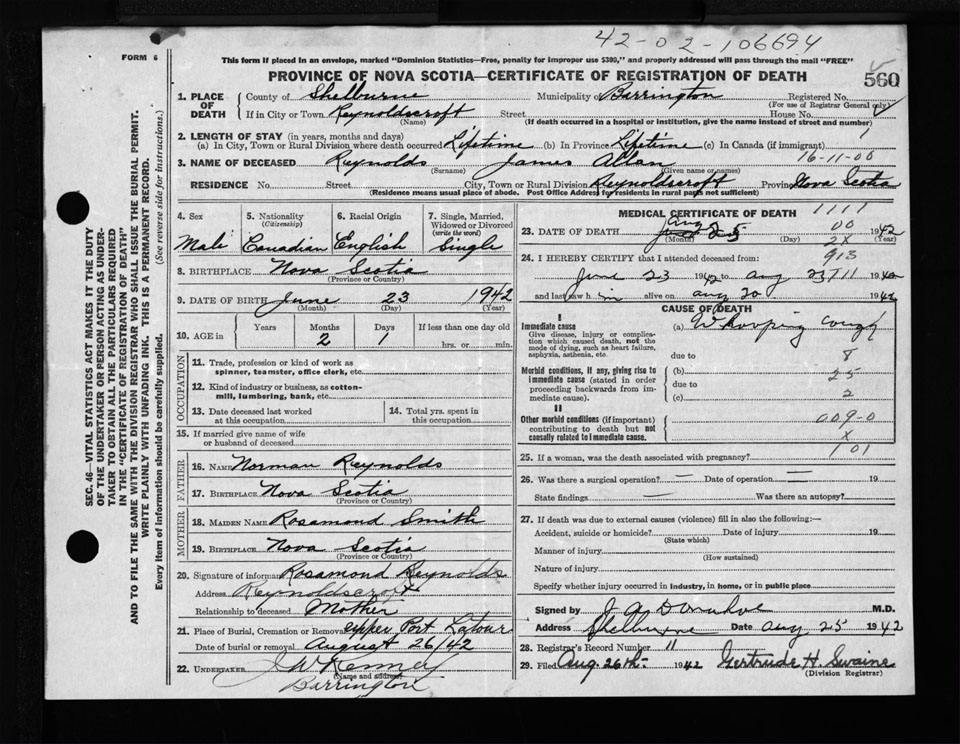 42-02-106694
FORM 6
This form if placed in an envelope, marked "Dominion Statistics—Free, penalty for improper use $300," and properly addressed will pass through the mail "FREE"
PROVINCE OF NOVA SCOTIA—CERTIFICATE OF REGISTRATION OF DEATH
560
SEC. 46—VITAL STATISTICS ACT MAKES IT THE DUTY
OF THE UNDERTAKER OR PERSON ACTING AS UNDER-
TAKER TO OBTAIN ALL THE PARTICULARS REQUIRED
IN THE "CERTIFICATE OF REGISTRATION OF DEATH"
AND TO FILE THE SAME WITH THE DIVISION REGISTRAR WHO SHALL ISSUE THE BURIAL PERMIT.
WRITE PLAINLY WITH UNFADING INK. THIS IS A PERMANENT RECORD.
Every item of information should be carefully supplied. (See reverse side for instructions.)
1. PLACE OF DEATH County of Shelburne Municipality of Barrington Registered No.
(For use of Registrar General only)
If in City or Town Reynoldscroft Street House No.
(Name) (If death occurred in a hospital or institution, give the name instead of street and number)
2. LENGTH OF STAY (in years, months and days)
(a) In City, Town or Rural Division where death occurred Lifetime (b) In Province Lifetime (c) In Canada (if immigrant)
16-11-00
3. NAME OF DECEASED Reynolds James Allan
(Surname) (Given name or names)
RESIDENCE No. Street City, Town or Rural Division Reynoldscroft Province Nova Scotia
(Residence means usual place of abode. Post Office Address for residents in rural parts not sufficient)
4. Sex
Male
5. Nationality
(Citizenship)
Canadian
6. Racial Origin
English
7. Single, Married,
Widowed or Divorced
(write the word)
Single
8. BIRTHPLACE Nova Scotia
(Province or Country)
9. DATE OF BIRTH June 23 1942
(Month) (Day) (Year)
10. AGE in Years Months Days If less than one day old
2 1 hrs. or min.
OCCUPATION
11. Trade, profession or kind of work as
spinner, teamster, office clerk, etc.
12. Kind of industry or business, as cotton-
mill, lumbering, bank, etc.
13. Date deceased last worked
at this occupation
14. Total yrs. spent in
this occupation
15. If married give name of wife
or husband of deceased
FATHER
16. NAME Norman Reynolds
17. BIRTHPLACE Nova Scotia
(Province or Country)
MOTHER
18. MAIDEN NAME Rosamond Smith
19. BIRTHPLACE Nova Scotia
(Province or Country)
20. Signature of informant Rosamond Reynolds
Address Reynoldscroft
Relationship to deceased Mother
21. Place of Burial, Cremation or Removal Upper Port Latour
Date of burial or removal August 26/42
22. UNDERTAKER
(Name and address)
Barrington
MEDICAL CERTIFICATE OF DEATH
1111
23. DATE OF DEATH Aug 25 1942
(Month) (Day) (Year)
00
2X
24. I HEREBY CERTIFY that I attended deceased from: 913
June 23 1942 to Aug 23 1942
and last saw him alive on Aug 20 1942
CAUSE OF DEATH
I
Immediate cause
Give disease, injury or complica-
tion which caused death, not the
mode of dying, such as heart failure,
asphyxia, asthenia, etc.
(a) Whooping cough
due to
8
Morbid conditions, if any, giving rise to
immediate cause (stated in order
proceeding backwards from im-
mediate cause).
(b)
25
due to
(c)
2
II
Other morbid conditions (if important)
contributing to death but not
causally related to immediate cause.
009-0
X
101
25. If a woman, was the death associated with pregnancy?
26. Was there a surgical operation? — Date of operation — 19
State findings — Was there an autopsy?
27. If death was due to external causes (violence) fill in also the following:—
Accident, suicide or homicide? Date of injury 19
(State which)
Manner of injury
(How sustained)
Nature of injury
Specify whether injury occurred in industry, in home, or in public place
Signed by J A Donahoe M.D.
Address Shelburne Date Aug 25 1942
28. Registrar's Record Number 11
29. Filed Aug. 26th 1942 Gertrude H. Swaine
(Division Registrar)